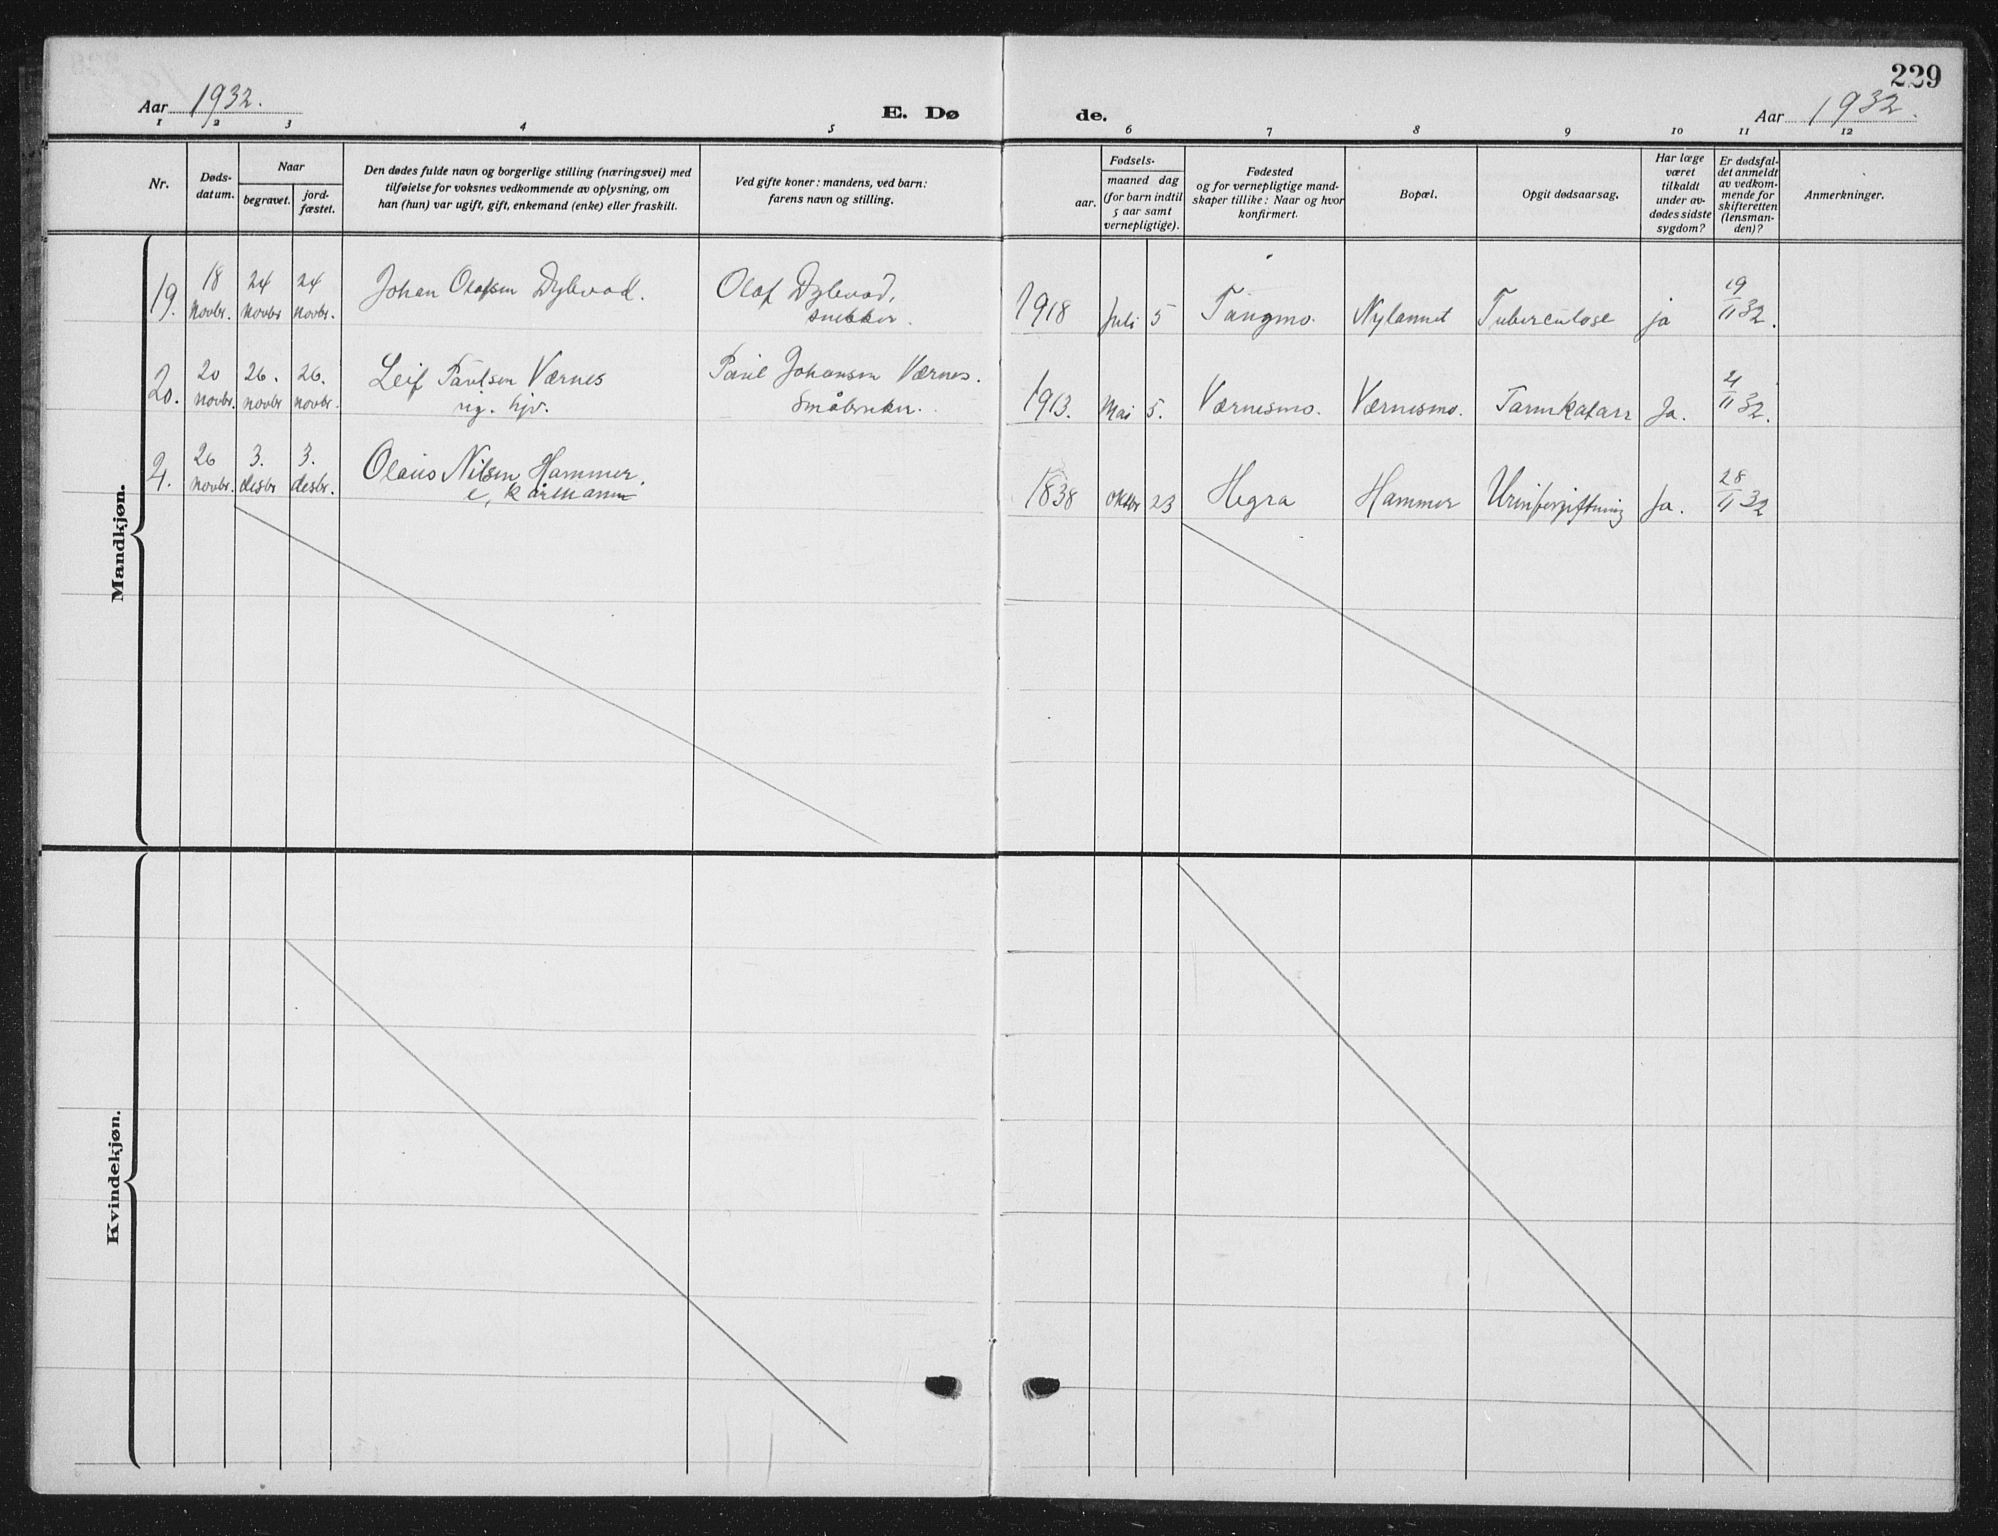 229
Aar 1932.
E. Dø
de.
Aar 1932.
1 2 3 4 5 6 7 8 9 10 11 12
Nr.
Døds-
datum.
Naar
begravet.
jord-
fæstet.
Den dødes fulde navn og borgerlige stilling (næringsvei) med
tilføielse for voksnes vedkommende av oplysning, om
han (hun) var ugift, gift, enkemand (enke) eller fraskilt.
Ved gifte koner: mandens, ved barn:
farens navn og stilling.
Fødsels-
aar.
maaned dag
(for barn indtil
5 aar samt
vernepligtige).
Fødested
og for vernepligtige mand-
skaper tillike: Naar og hvor
konfirmert.
Bopæl.
Opgit dødsaarsag.
Har læge
været
tilkaldt
under av-
dødes sidste
sygdom?
Er dødsfal-
det anmeldt
av vedkom-
mende for
skifteretten
(lensman-
den)?
Anmerkninger.
Mandkjøn.
19. 18 novbr. 24 novbr 24 novbr. Johan Olafsen Dybvad. Olaf Dybvad, snekker. 1918 Juli 5 Tangmo. Nylannet Tuberculose ja 19/11 32.
20. 20 novbr. 26. novbr 26. novbr. Leif Paulsen Værnes ug. Paul Johansen Værnes. Småbruker. 1913. Mai 5. Værnesmo. Værnesmo. Tarmkatarr Ja. 21/11 32.
21. 26 novbr. 3. desbr 3. desbr. Olaus Nilsen Hammer. e, kårmann 1838 oktbr 23 Hegra Hammer Urinforgiftning Ja. 28/11 32
Kvindekjøn.